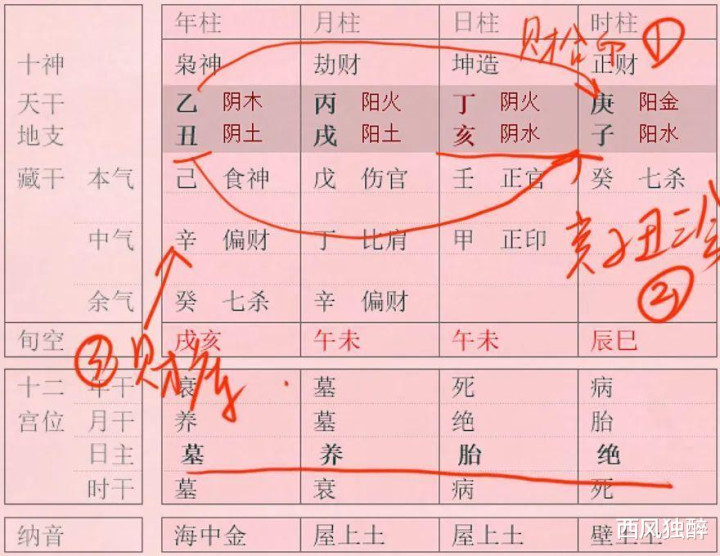 年柱 月柱 日柱 时柱
十神 枭神 劫财 坤造 正财
财合印 ①
天干 乙 阴木 丙 阳火 丁 阴火 庚 阳金
地支 丑 阴土 戌 阳土 亥 阴水 子 阳水
藏干 本气 己 食神 戊 伤官 壬 正官 癸 七杀
中气 辛 偏财 丁 比肩 甲 正印
亥子丑三会
②
余气 癸 七杀 辛 偏财
旬空 戌亥 午未 午未 辰巳
③财库
十二 年干 衰 墓 死 病
宫位 月干 养 墓 绝 胎
日主 墓 养 胎 绝
时干 墓 衰 病 死
纳音 海中金 屋上土 屋上土 壁上土
西风独醉